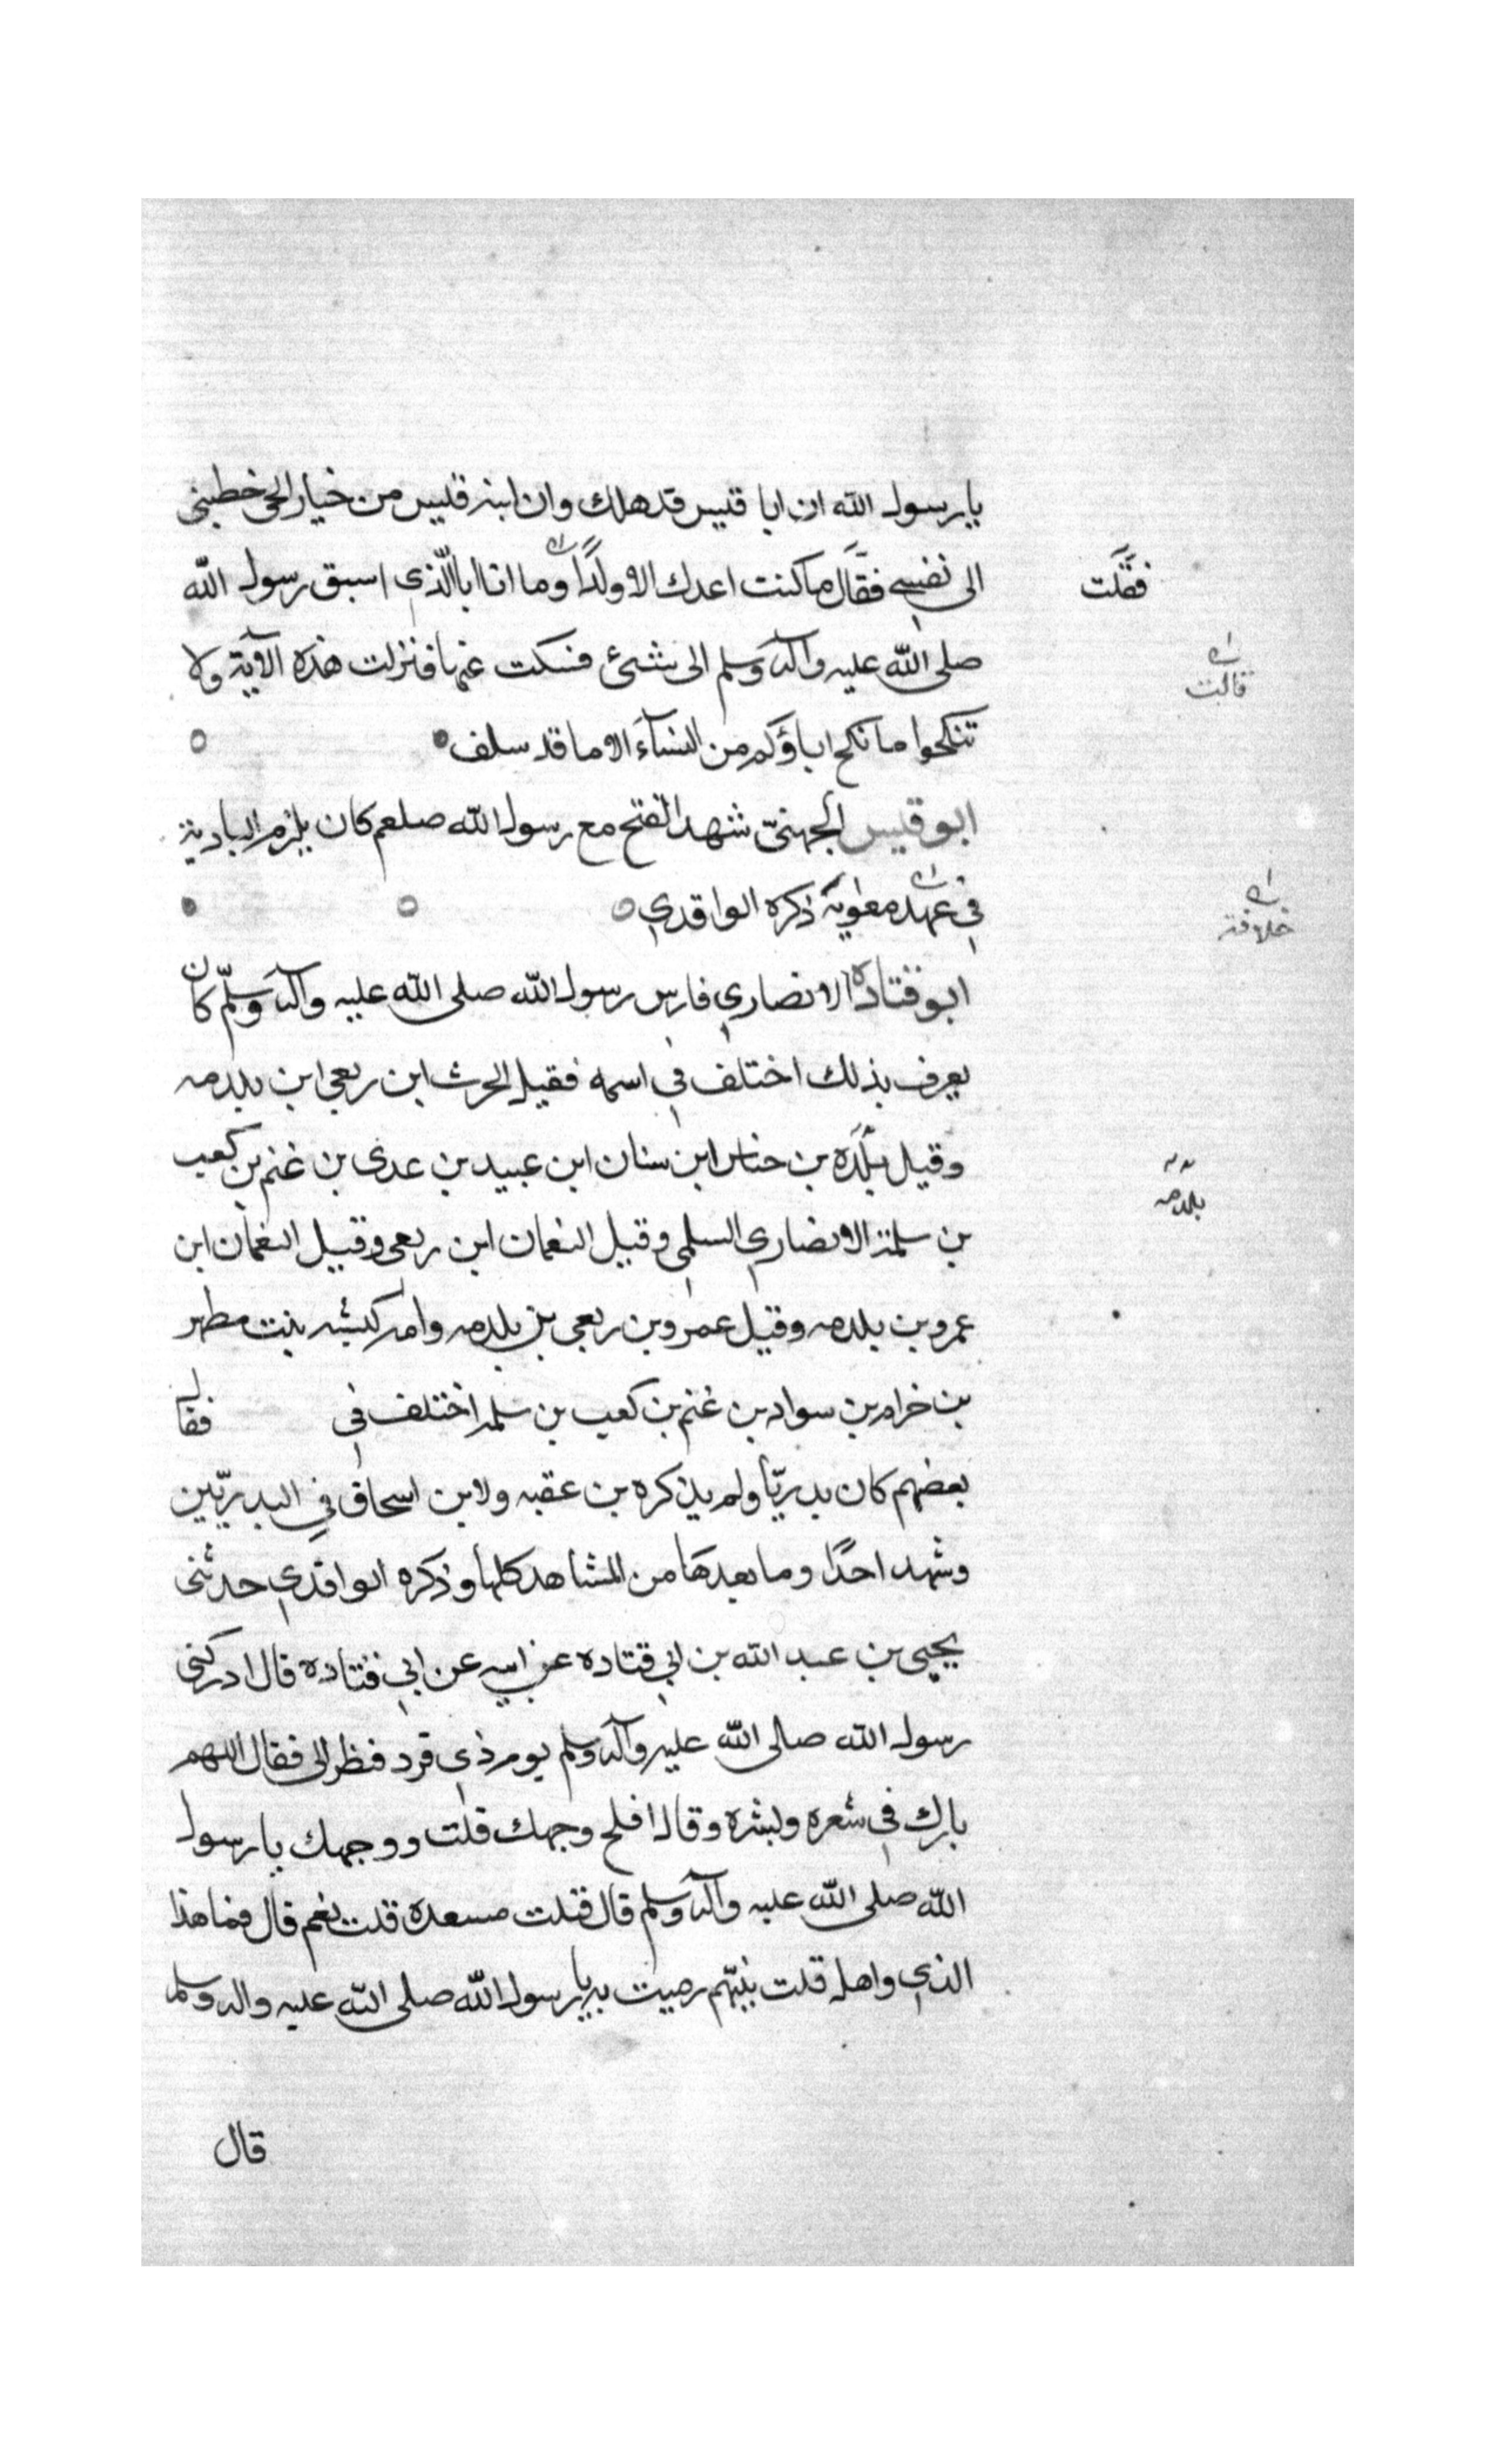 يا رسول الله ان ابا قيس قد هلك وان ابنه قيس من خيار الحى خطبنى
الى نفسي فقال ما كنت اعدك الا ولدًا وما انا ابا الّذي اسبق رسول الله
فقلت
صلى الله عليه وآله وسلم الى شئ فسكت عنها فنزلت هذه الآية ولا
قالت
تنكحوا ما نكح اباؤكم من النسآء الا ما قد سلف
ابو قيس الجهنىّ شهد الفتح مع رسول الله صلعم كان يلزم البادية
في عهد معوية ذكره الواقدي
خلافة
ابو قتاده الانصاري فارس رسول الله صلى الله عليه وآله وسلّم كان
يعرف بذلك اختلف في اسمه فقيل الحرث ابن ربعي ابن بلدمه
وقيل بلدة بن خناس ابن سنان ابن عبيد بن عدى بن غنم بن كعب
بلدمه
بن سلمة الانصاري السلمي وقيل النعمان ابن ربعى وقيل النعمان ابن
عمرو بن بلدمه وقيل عمرو بن ربعي بن بلدمه وامه كبشه بنت مطهر
بن حرام بن سواد بن غنم بن كعب بن سلمه اختلف في فقال
بعضهم كان بدريّا ولم يذكره بن عقبه ولا بن اسحاق في البدريّين
وشهد احدًا وما بعدها من المشاهد كلها وذكره الواقدي حدثنى
يحيى بن عبد الله بن ابي قتاده عن ابيه عن ابي قتاده قال ادركنى
رسول الله صلى الله عليه وآله وسلم يوم ذي قرد فنظر الى فقال اللهم
بارك في شعره وبشره وقال افلح وجهك قلت ووجهك يا رسول
الله صلى الله عليه وآله وسلم قال قتلت مسعدة قلت نعم قال فما هذا
الذي قلت رميت به يا رسول الله صلى الله عليه واله وسلم
قال